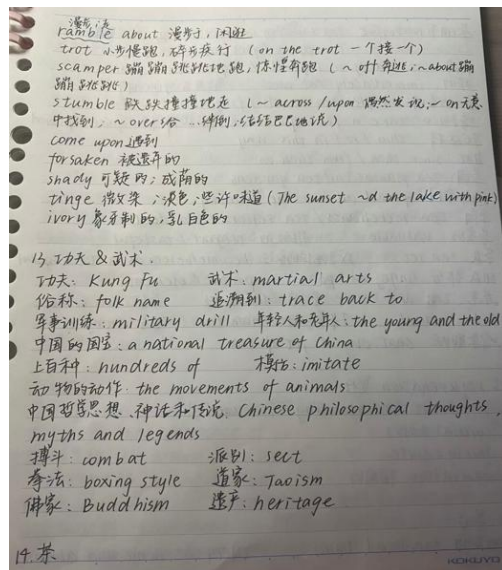 漫步,流
ramble about 漫步于,闲逛
trot 小步慢跑,碎步疾行 (on the trot 一个接一个)
scamper 蹦蹦跳跳地跑,惊惶奔跑 (~ off 奔逃;~about蹦
蹦跳跳)
stumble 跌跌撞撞地走 (~ across /upon 偶然发现;~ on 无意
中找到;~ over 给...绊倒,结结巴巴地说)
come upon 遇到
forsaken 被遗弃的
shady 可疑的;成荫的
tinge 微染;淡色,些许味道 (The sunset ~d the lake with pink)
ivory 象牙制的,乳白色的
13. 功夫 & 武术.
功夫: Kung Fu 武术: martial arts
俗称: folk name 追溯到: trace back to
军事训练: military drill 年轻人和老年人: the young and the old
中国的国宝: a national treasure of China
上百种: hundreds of 模仿: imitate
动物的动作: the movements of animals
中国哲学思想、神话和传说: Chinese philosophical thoughts,
myths and legends
搏斗: combat 派别: sect
拳法: boxing style 道家: Taoism
佛家: Buddhism 遗产: heritage
14. 茶
KOKUYO